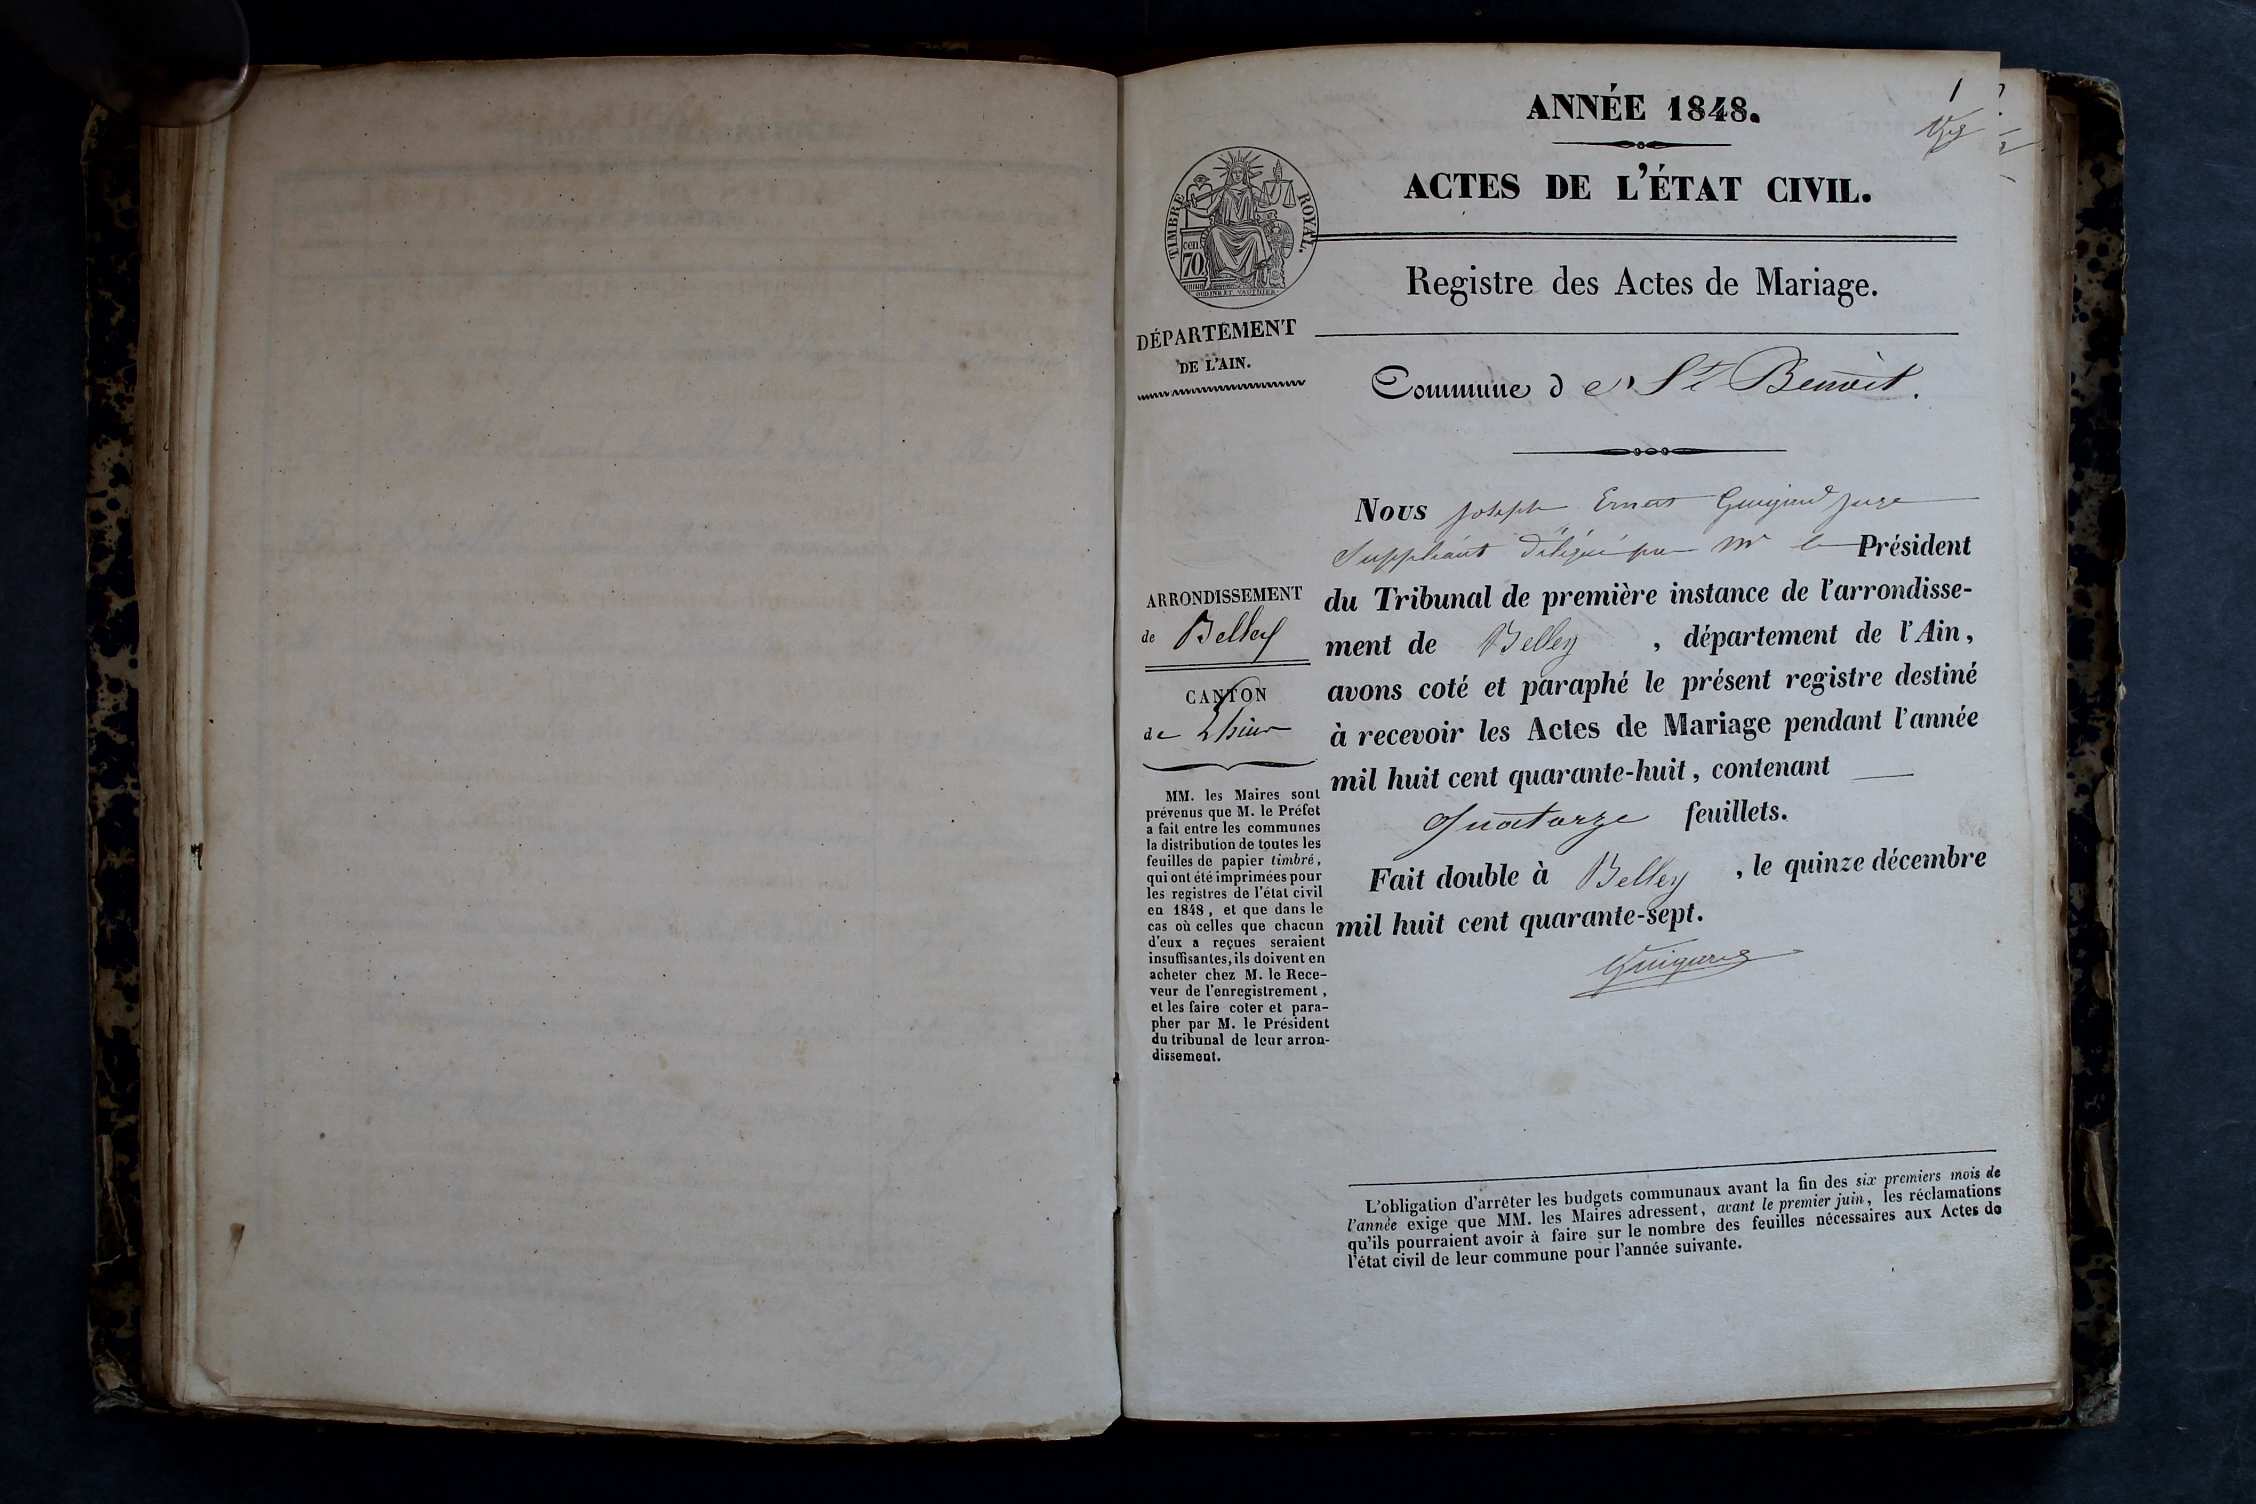 1
ANNÉE 1848.
ACTES DE L'ÉTAT CIVIL.
TIMBRE ROYAL.
cen. 70
Registre des Actes de Mariage.
DÉPARTEMENT
DE L'AIN.
Commune de St Benoit.
ARRONDISSEMENT
de Belley
CANTON
de
MM. les Maires sont
prévenus que M. le Préfet
a fait entre les communes
la distribution de toutes les
feuilles de papier timbré,
qui ont été imprimées pour
les registres de l'état civil
en 1848, et que dans le
cas où celles que chacun
d'eux a reçues seraient
insuffisantes, ils doivent en
acheter chez M. le Rece-
veur de l'enregistrement,
et les faire coter et para-
pher par M. le Président
du tribunal de leur arron-
dissement.
Nous Joseph Ernest juge
Suppléant délégué par Mr le Président
du Tribunal de première instance de l'arrondisse-
ment de Belley, département de l'Ain,
avons coté et paraphé le présent registre destiné
à recevoir les Actes de Mariage pendant l'année
mil huit cent quarante-huit, contenant
Quatorze feuillets.
Fait double à Belley, le quinze décembre
mil huit cent quarante-sept.
L'obligation d'arrêter les budgets communaux avant la fin des six premiers mois de
l'année exige que MM. les Maires adressent, avant le premier juin, les réclamations
qu'ils pourraient avoir à faire sur le nombre des feuilles nécessaires aux Actes de
l'état civil de leur commune pour l'année suivante.